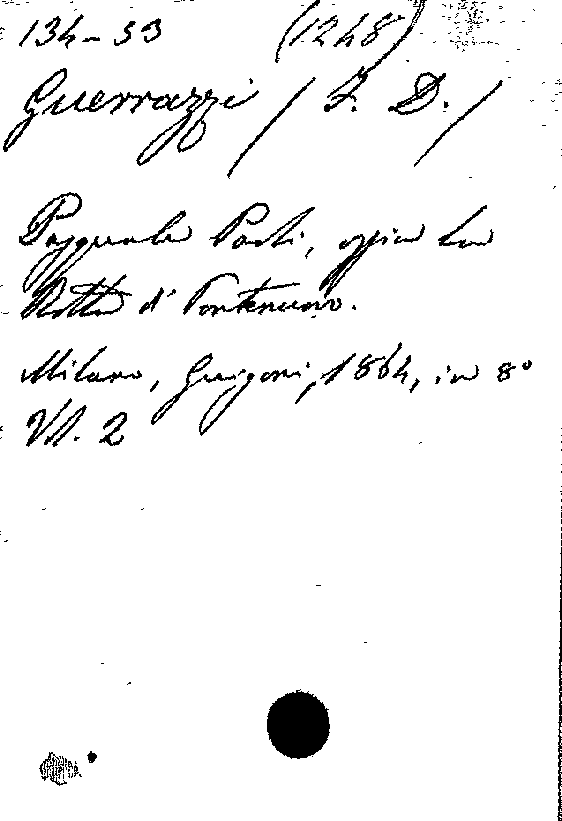 134-53 (1248)
Guerrazzi / F. D. /
Pasquale Paoli, ossia la
Rotta di Pontenuovo.
Milano, Guigoni, 1864, in 8°
Vol. 2